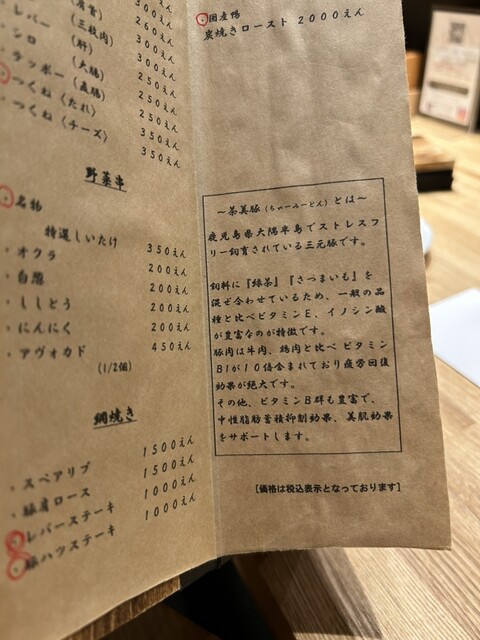 (肩肉)
300えん
レバー (三枝肉)
300えん
シロ (肝)
260えん
テッポー (大腸)
300えん
つくね (直腸)
250えん
つくね (たれ)
250えん
350えん
(チーズ)
350えん
野菜串
名物
特選しいたけ
350えん
・オクラ
200えん
・白葱
200えん
・ししとう
200えん
・にんにく
200えん
・アヴォカド
450えん
(1/2個)
網焼き
・スペアリブ
1500えん
・豚肩ロース
1500えん
・レバーステーキ
1000えん
・豚ハツステーキ
1000えん
・国産鴨
炭焼きロースト 2000えん
～茶美豚(ちゃーみーとん)とは～
鹿児島県大隅半島でストレスフ
リー飼育されている三元豚です。
飼料に『緑茶』『さつまいも』を
混ぜ合わせているため、一般の品
種と比べビタミンE、イノシン酸
が豊富なのが特徴です。
豚肉は牛肉、鶏肉と比べ ビタミン
B1が10倍含まれており疲労回復
効果が絶大です。
その他、ビタミンB群も豊富で、
中性脂肪蓄積抑制効果、美肌効果
をサポートします。
[価格は税込表示となっております]